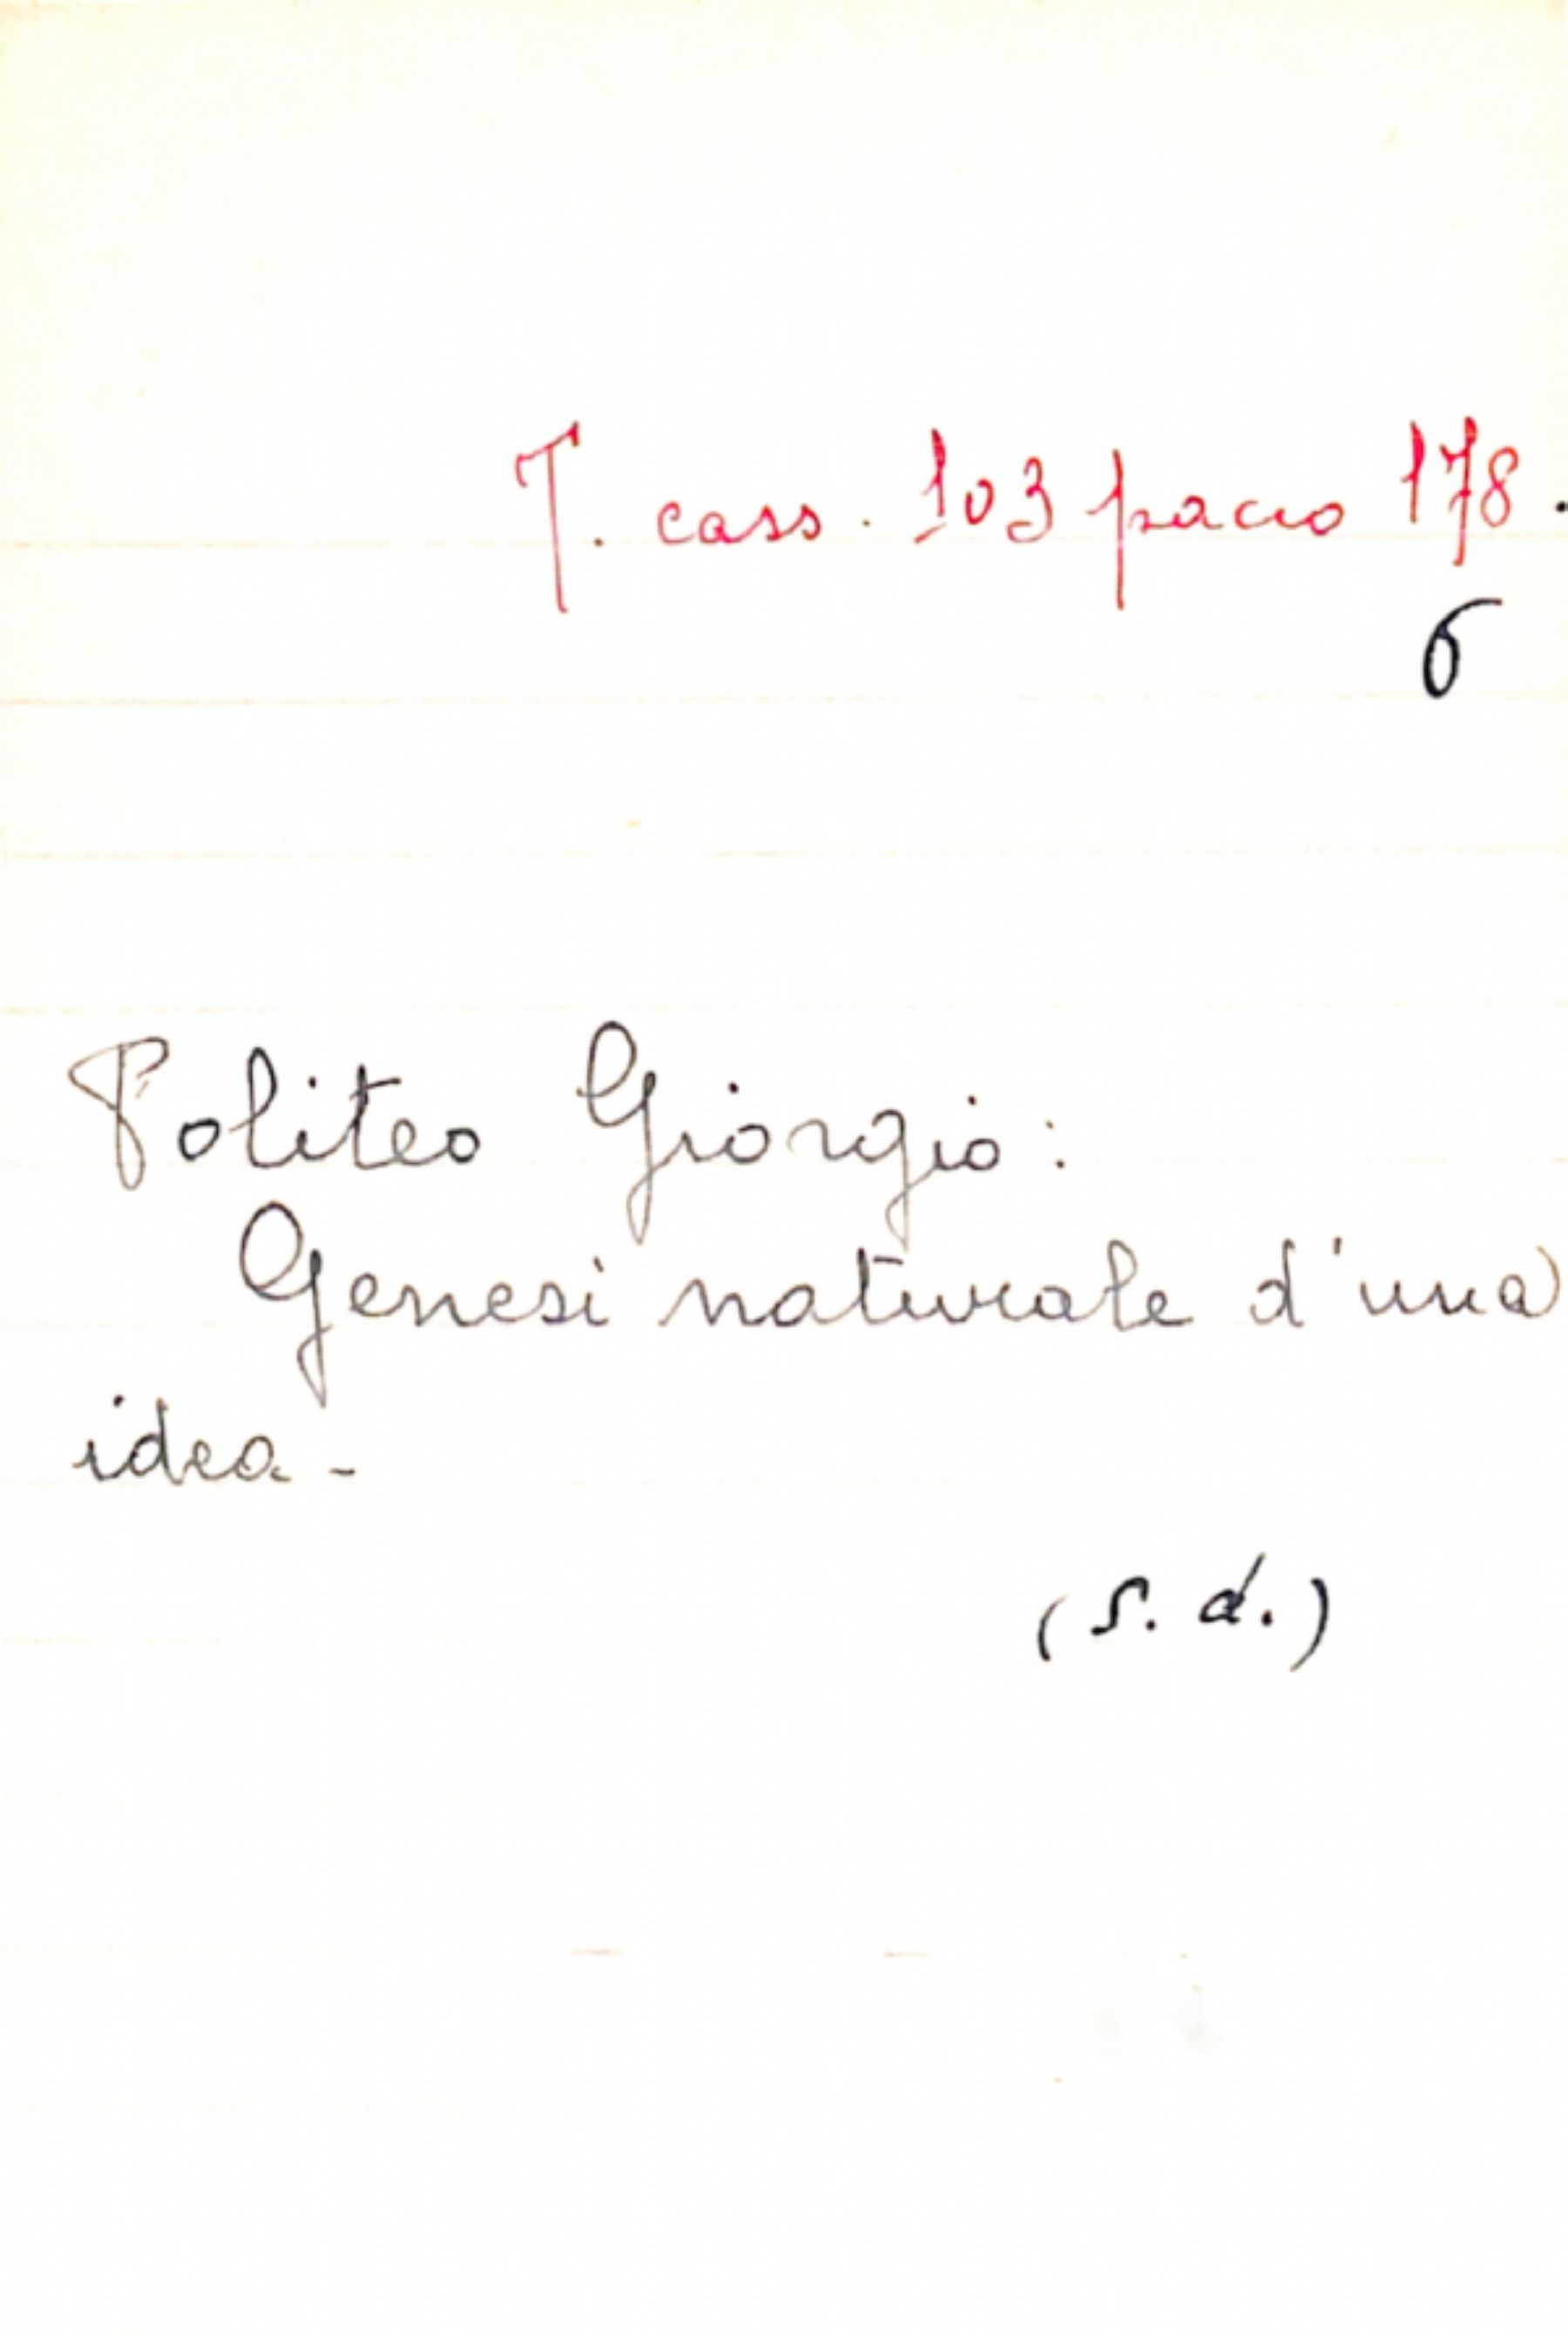 T. cass. 103 pacco 178.
6
Politeo Giorgio:
Genesi naturale d'una
idea -
(s. d.)